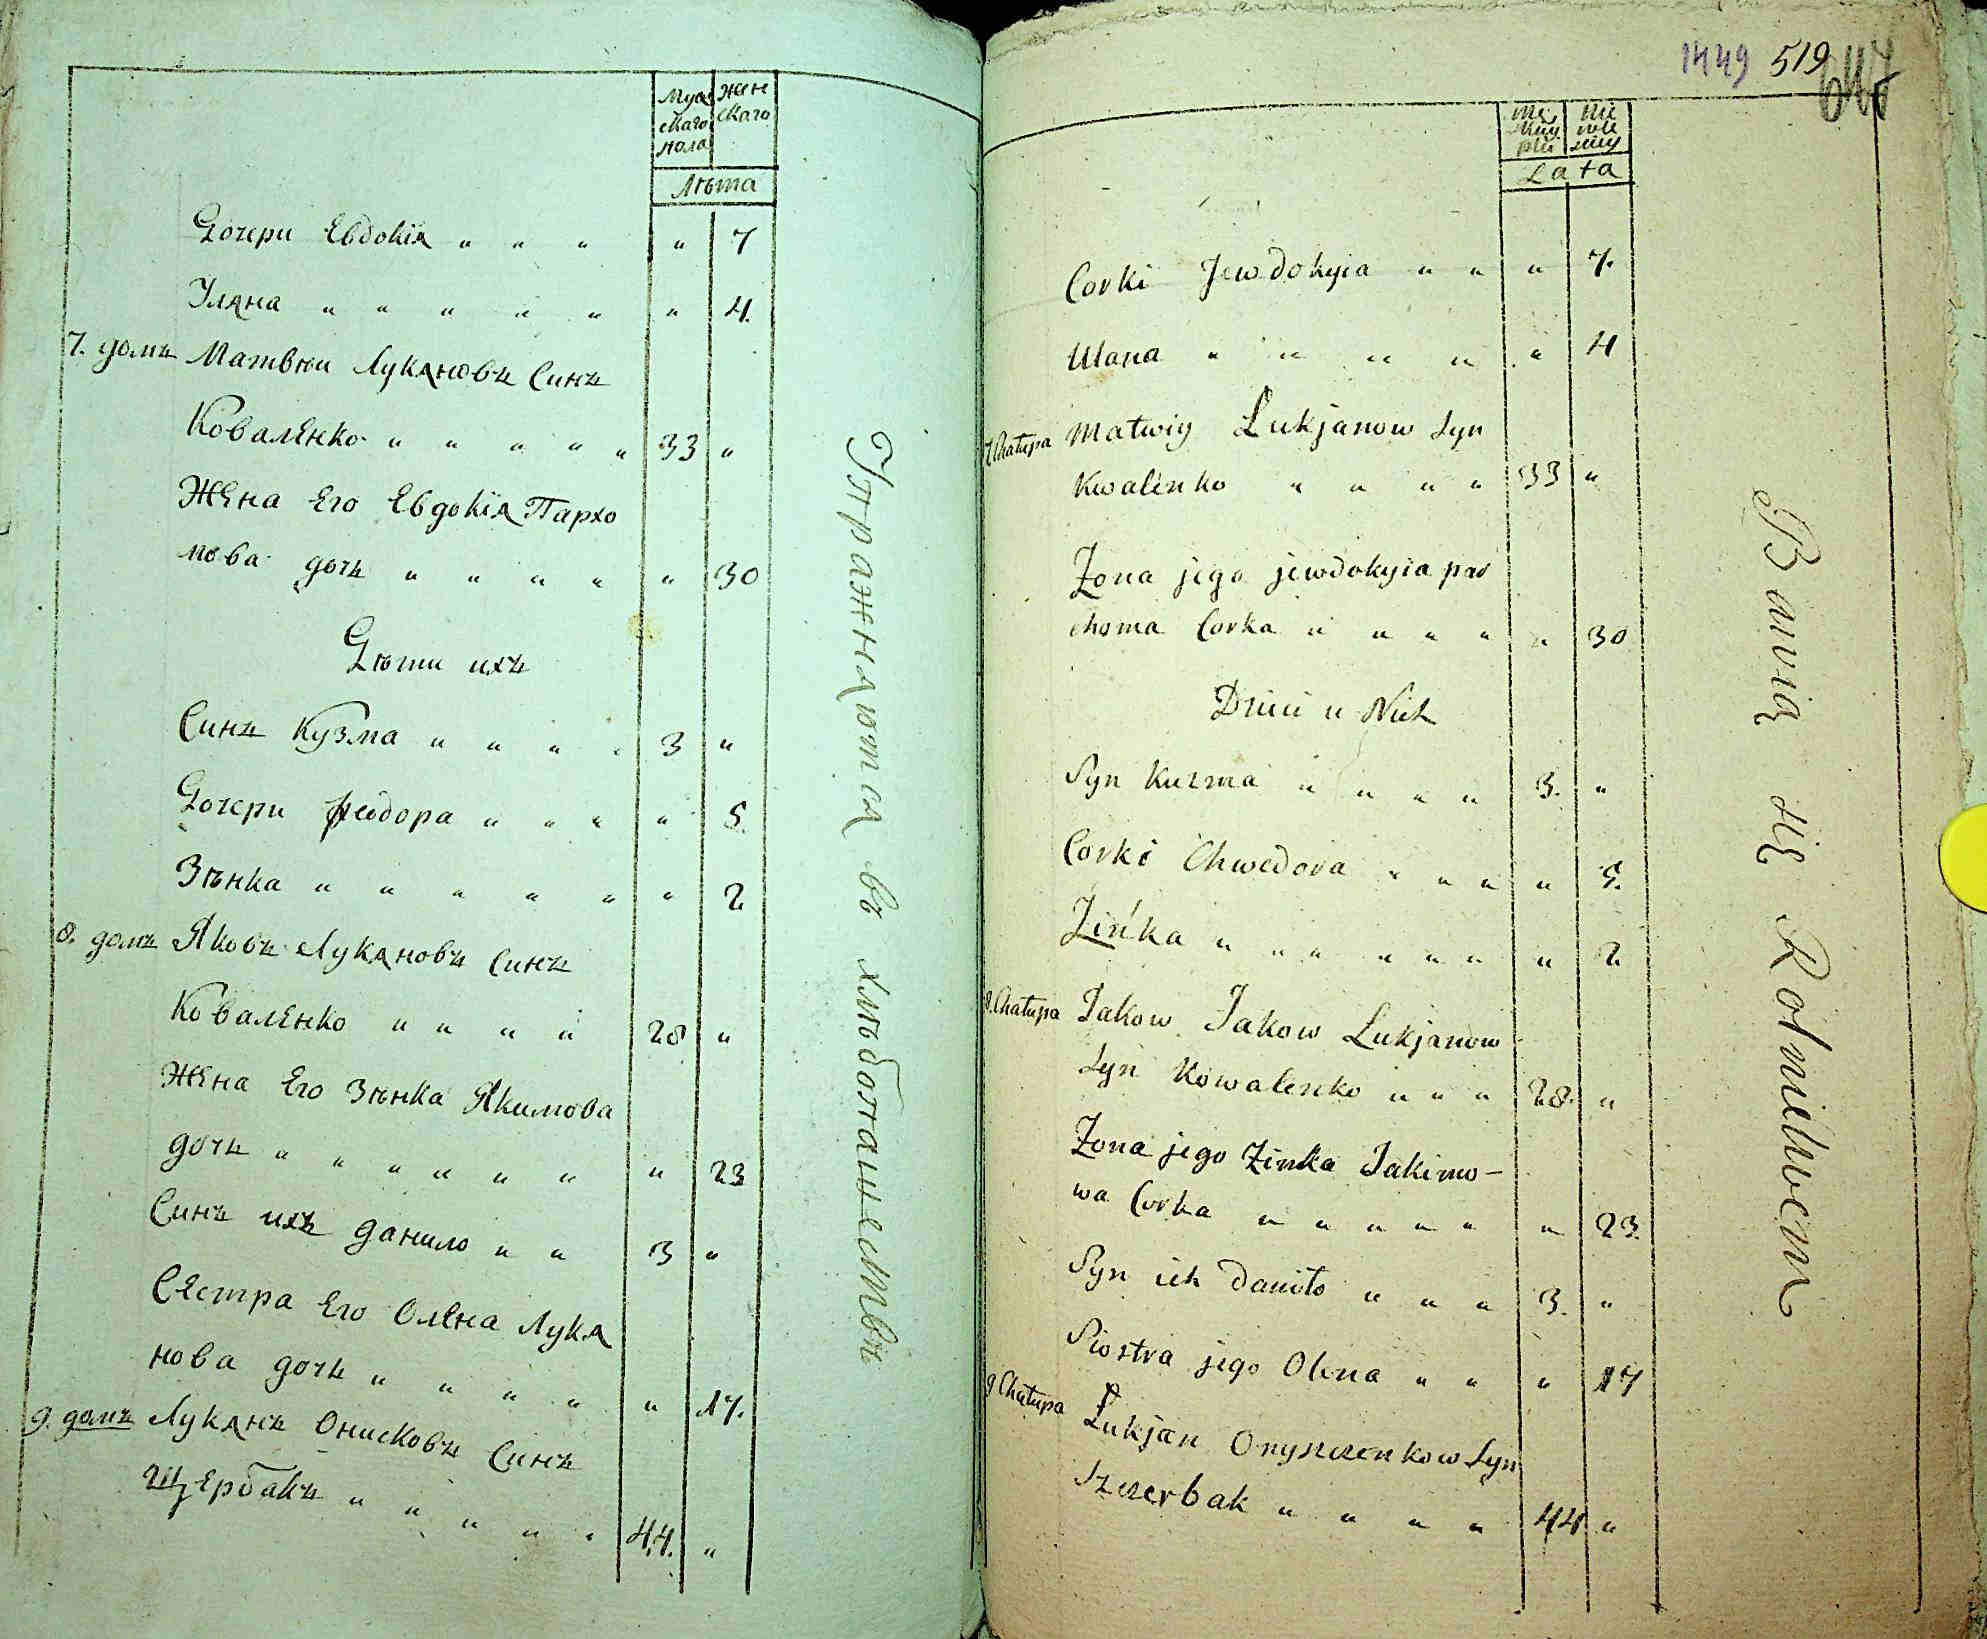 Муж
скаго
пола
Жен
скаго
Лѣта
Дочери Евдокія " " " " 7
Уляна " " " " " " 4.
7. домъ Матвѣи Лукяновъ Синъ
Коваленко " " " " " 33 "
Жена Его Евдокія Пархо
мова дочь " " " " " 30
Дѣти ихъ
Синъ Кузма " " " " 3 "
Дочери Феодора " " " " 5.
Зѣнка " " " " " " 2
8. домъ Яковъ Лукяновъ Синъ
Коваленко " " " " 28 "
Жена Его Зѣнка Якимова
дочь " " " " " " " 23
Синъ ихъ Данило " " 3 "
Сестра Его Олена Лукя
нова дочь " " " " " 17.
9. домъ Лукянъ Онисковъ Синъ
Щербакъ " " " " " 44. "
Упражняются въ хлѣбопашествѣ
1449 519
Mę
Lata
Corki Jewdokyia " " " 7.
Ulana " " " " " 4
7 Chałupa Matwiy Łukjanow Syn
Kwalenko " " " " 33 "
Zona jego jewdokyia par
choma Corka " " " " " 30
Dzieci u Nich
Syn Kuzma " " " " 3. "
Corki Chwedora " " " " 5.
Zińka " " " " " " " 2
8. Chałupa Jakow Jakow Lukjanow
Syn Kowalenko " " " 28. "
Zona jego Zinka Jakimo-
wa Corka " " " " " " 23.
Syn ich Daniło " " " 3. "
Siostra jego Olena " " " 17
9 Chałupa Łukjan Onyszczenkow Syn
Szczerbak " " " " 44 "
Bawią się Rolnictwem